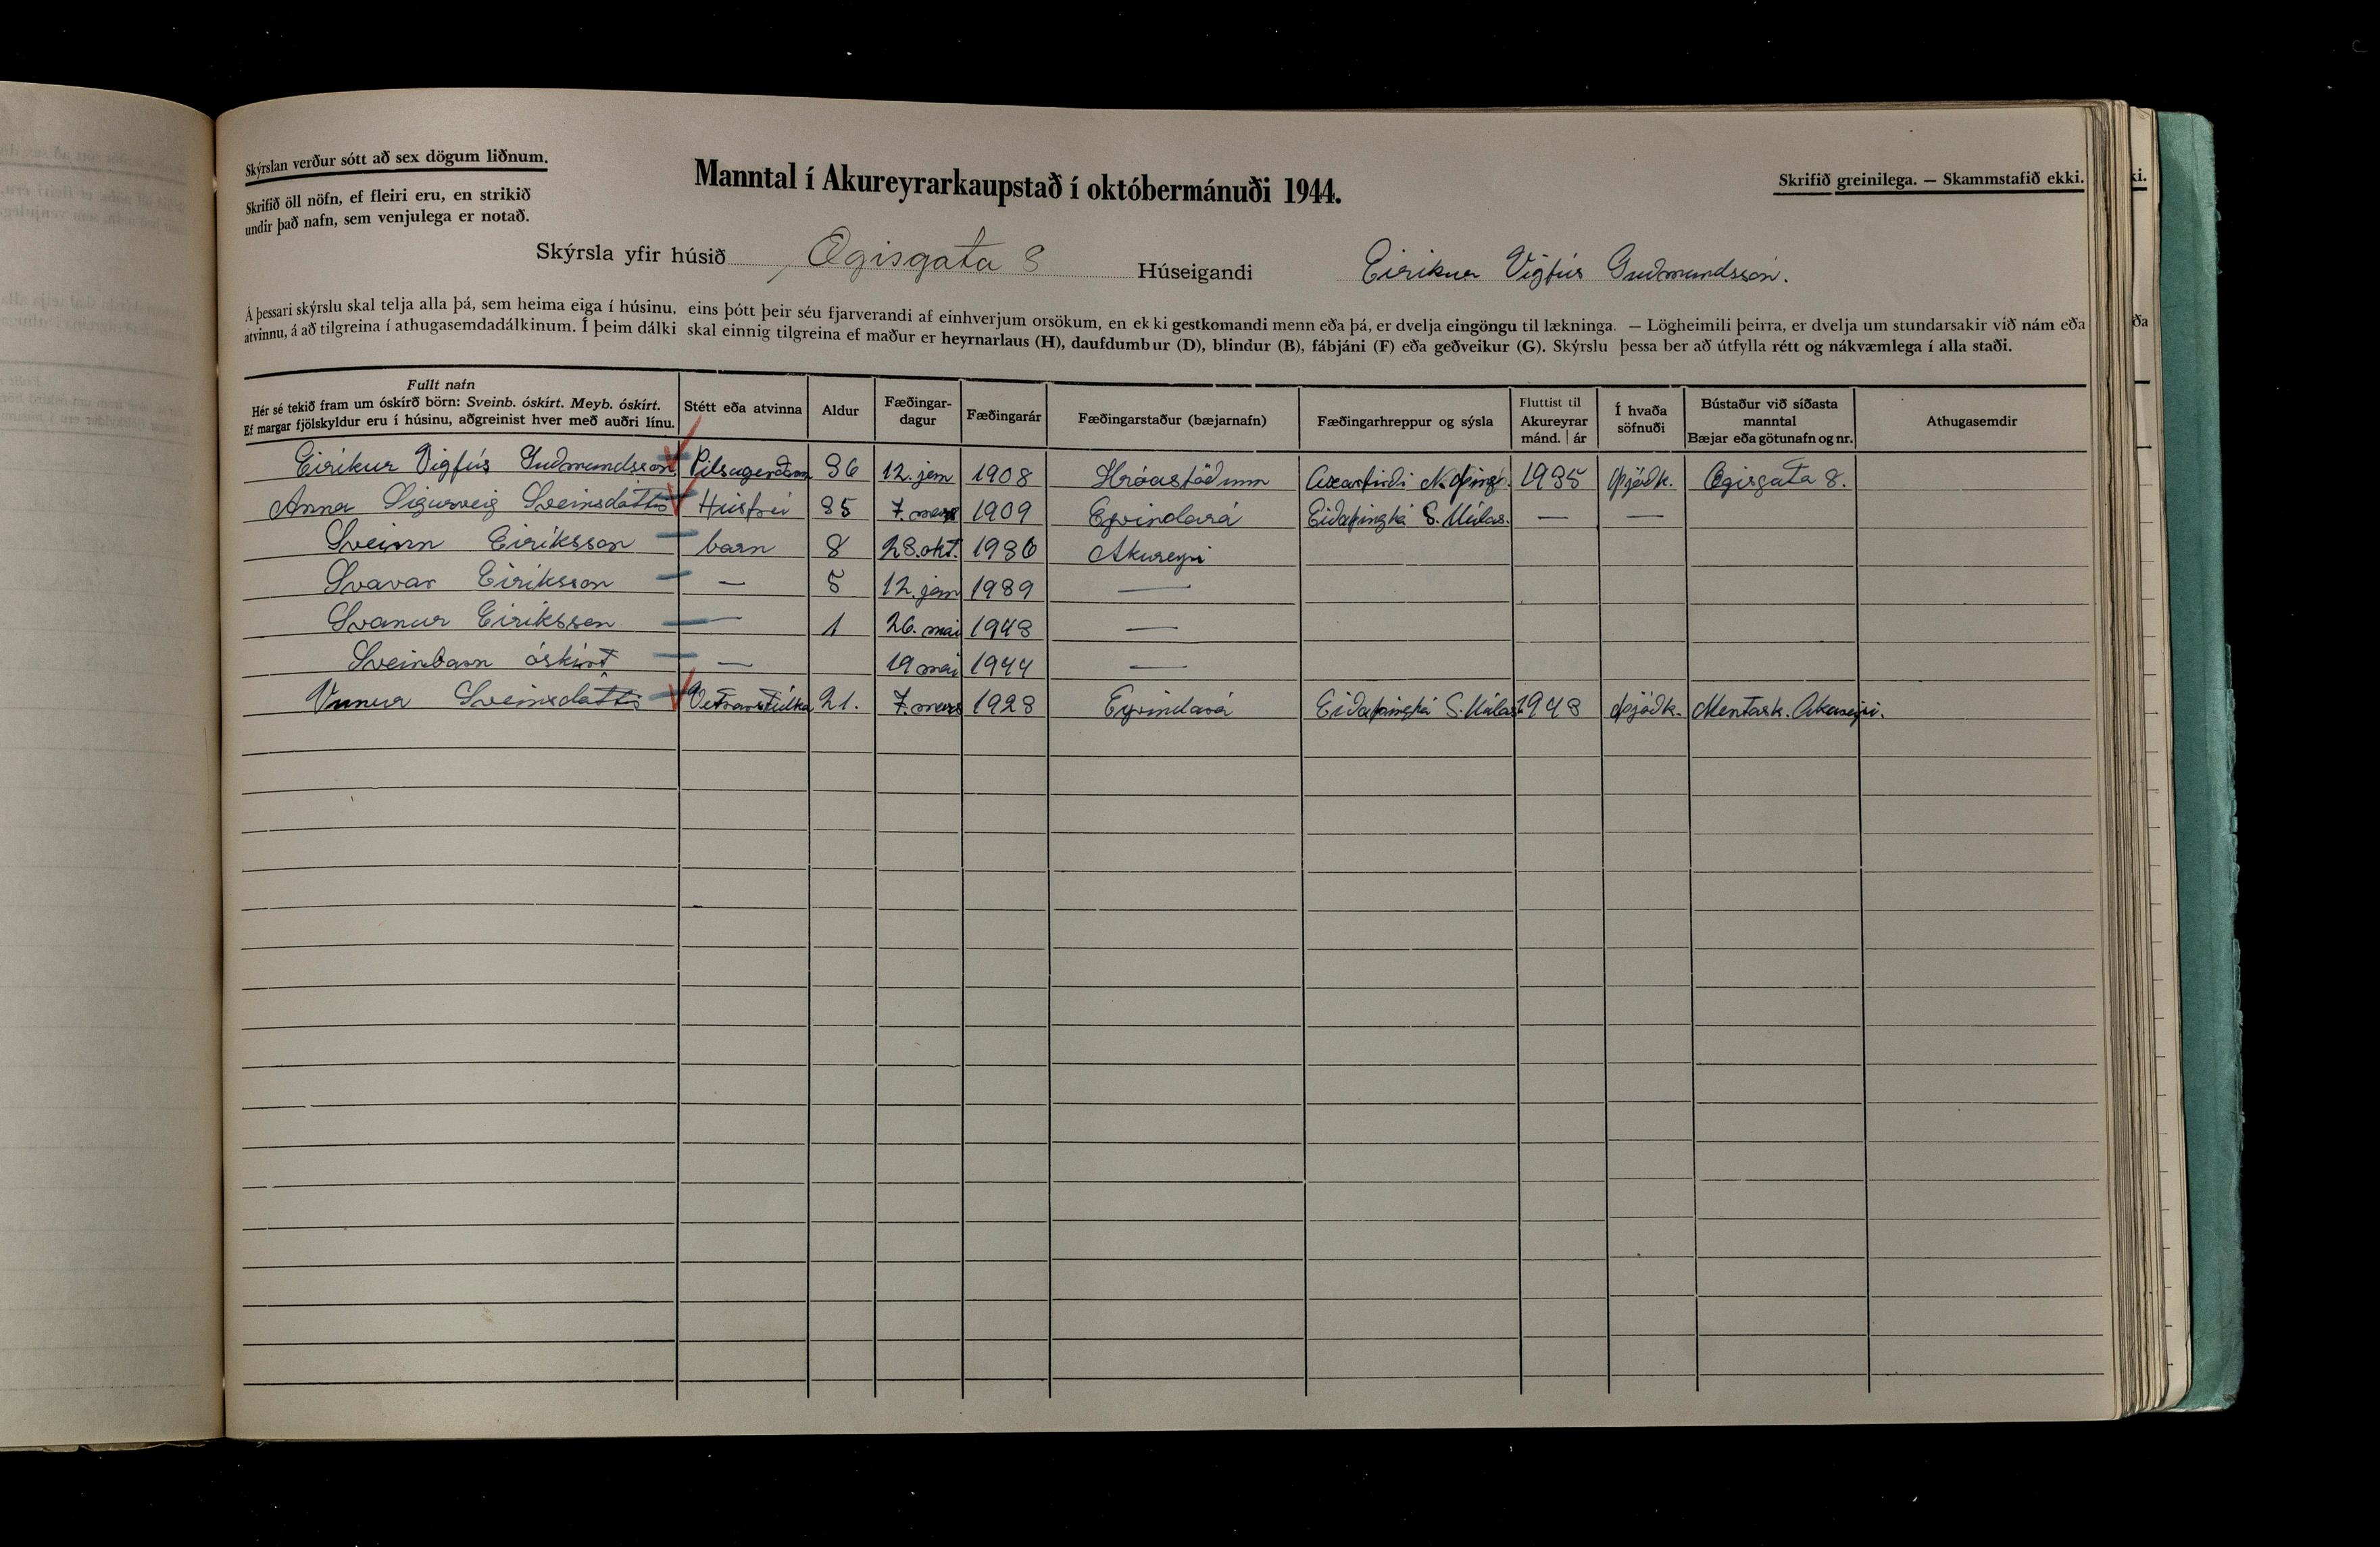 Skýrslan verður sótt að sex dögum liðnum.
Skrifið öll nöfn, ef fleiri eru, en strikið
undir það nafn, sem venjulega er notað.
Manntal í Akureyrarkaupstað í októbermánuði 1944.
Skrifið greinilega. — Skammstafið ekki.
Skýrsla yfir húsið Ægisgata 8 Húseigandi Eirikur Vigfús Guðmundsson.
Á þessari skýrslu skal telja alla þá, sem heima eiga í húsinu, eins þótt þeir séu fjarverandi af einhverjum orsökum, en ekki gestkomandi menn eða þá, er dvelja eingöngu til lækninga. — Lögheimili þeirra, er dvelja um stundarsakir við nám eða
atvinnu, á að tilgreina í athugasemdadálkinum. Í þeim dálki skal einnig tilgreina ef maður er heyrnarlaus (H), daufdumbur (D), blindur (B), fábjáni (F) eða geðveikur (G). Skýrslu þessa ber að útfylla rétt og nákvæmlega í alla staði.
Fullt nafn
Hér sé tekið fram um óskírð börn: Sveinb. óskírt. Meyb. óskírt.
Ef margar fjölskyldur eru í húsinu, aðgreinist hver með auðri línu.
Stétt eða atvinna
Aldur
Fæðingar-
dagur
Fæðingarár
Fæðingarstaður (bæjarnafn)
Fæðingarhreppur og sýsla
Fluttist til
Akureyrar
mánd. | ár
Í hvaða
söfnuði
Bústaður við síðasta
manntal
Bæjar eða götunafn og nr.
Athugasemdir
Eiríkur Vigfús Guðmundsson 36 12. jan 1908 Hróastöðum Axarfirði N.þing. 1935 þjóðk. Ægisgata 8.
Anna Sigurveig Sveinsdóttir Húsfrú 35 7. mars 1909 Eyvindará Eiðaþinghá S. Múlas. — —
Sveinn Eiríksson barn 8 28. okt. 1936 Akureyri
Svavar Eiríksson — 5 12. jan 1939 —
Svanur Eiríksson — 1 26. mai 1943 —
Sveinbarn óskírt — 19 mai 1944 —
Unnur Sveinsdóttir Vetrarstúlka 21. 7. mars 1923 Eyvindará Eiðaþinghá S. Múlas. 1943 þjóðk. Mentask. Akureyri.